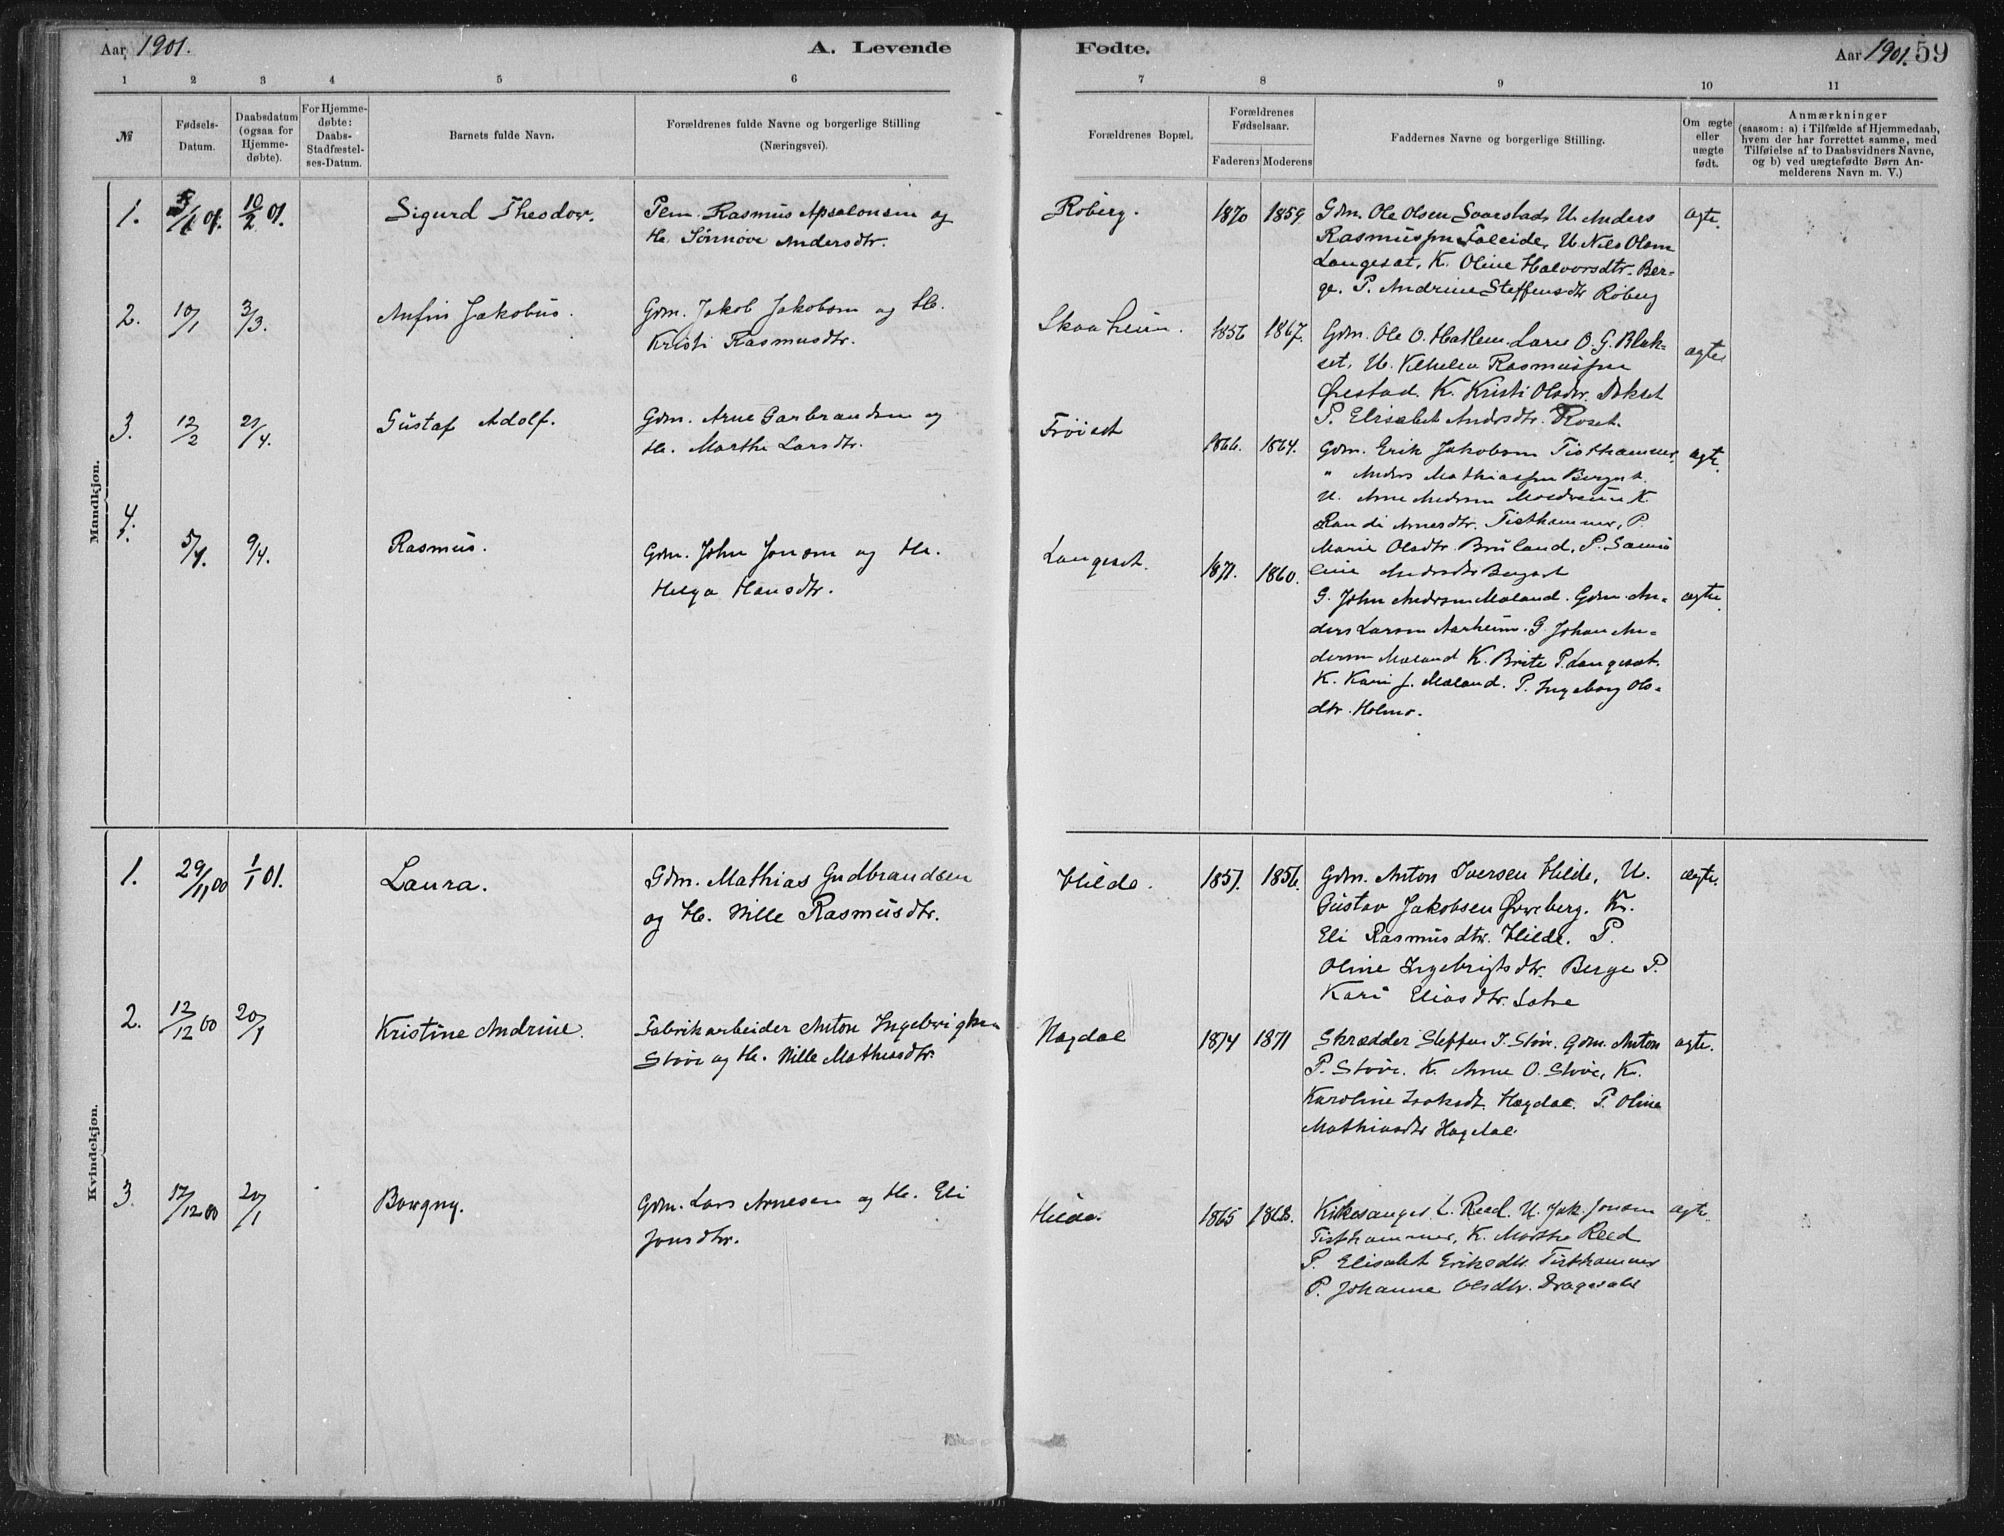 Aar 1901. A. Levende Fødte. Aar 1901. 59
1 2 3 4 5 6 7 8 9 10 11
№
Fødsels-
Datum.
Daabsdatum
(ogsaa for
Hjemme-
døbte).
For Hjemme-
døbte:
Daabs-
Stadfæstel-
ses-Datum.
Barnets fulde Navn.
Forældrenes fulde Navne og borgerlige Stilling
(Næringsvei).
Forældrenes Bopæl.
Forældrenes
Fødselsaar.
Faderens Moderens
Faddernes Navne og borgerlige Stilling.
Om ægte
eller
uægte
født.
Anmærkninger
(saasom: a) i Tilfælde af Hjemmedaab,
hvem der har forrettet samme, med
Tilføielse af to Daabsvidners Navne,
og b) ved uægtefødte Børn An-
melderens Navn m. V.)
Mandkjøn.
1. 10/2 01. Sigurd Theodor.
Pem. Rasmus Apsalonsen og
H. Sønnøve Andersdtr.
Roberg. 1870 1859
Gdm. Ole Olsen Svarstad, U. Anders
Rasmussen Faleide, U. Nils Olsen
Langesæt, K. Oline Halvorsdtr. Ber-
ge. P. Andrine Steffensdtr Roberg
ægte.
2. 10/1 3/3. Anfin Jakobus.
Gdm. Jakob Jakobsen og H.
Kristi Rasmusdtr.
Skaaheim. 1856 1867.
Gdm. Ole O. Hatlem. Lars O. G. Blak-
set, U. Rasmussen
Ørestad. K. Kristi Olsdtr.
P. Elisabet Andrsdtr. Roset.
ægte
3. 12/2 21/4. Gustaf Adolf.
Gdm. Arne Garbrandsen og
H. Marthe Larsdtr.
Frøiset 1866. 1864.
Gdm. Erik Jakobsen Tisthammer,
" Anders Mathiassen Bergset.
U. Arne Andrsen K.
Randi Arnesdtr. Tisthammer, P.
Marie Olsdtr. Bruland, P. Samu
line Andrsdtr Bergset
ægte.
4. 5/4. 9/4. Rasmus.
Gdm. John Jonsen og H.
Helga Hansdtr.
Langesæt. 1871. 1860.
G. John Andrsen Maland. Gdm. An-
ders Larsen Aarheim. G Johan An-
dersen Maland K. Brite P. Langesæt.
K. Kari J. Maland. P. Ingeborg Ols-
dtr. Holmø.
ægte.
Kvindekjøn.
1. 29/11 00 1/1 01. Laura.
Gdm. Mathias Gudbrandsen
og H. Nille Rasmusdtr.
Hilde. 1857. 1856.
Gdm. Anton Iversen Hilde, U.
Gustav Jakobsen Øvreberg. K.
Eli Rasmusdtr. Hilde. P.
Oline Ingebrigtsdtr. Berge P.
Kari Eliasdtr. Sætre
ægte.
2. 12/12 00 20/1 Kristine Andrine.
Fabrikarbeider Anton Ingebrigtsen
Støve og H. Nille Mathiasdtr.
Hagdal 1874 1871
Skrædder Steffen I. Støve. Gdm. Anton
P. Støve. K. Anne O. Støve, K.
Karoline Isaksdt. Hægdal. P. Oline
Mathiasdtr Hagdal.
ægte.
3. 17/12 00 20/1 Borgny.
Gdm. Lars Arnesen og H. Eli
Jonsdtr.
Hilde. 1865 1868.
Kirkesanger L. Reed. U. Jak. Jonsen
Tisthammer, K. Marthe Reed
P. Elisabet Eriksdtr. Tisthammer
P. Johanne Olsdtr. Dragesæt
ægte.